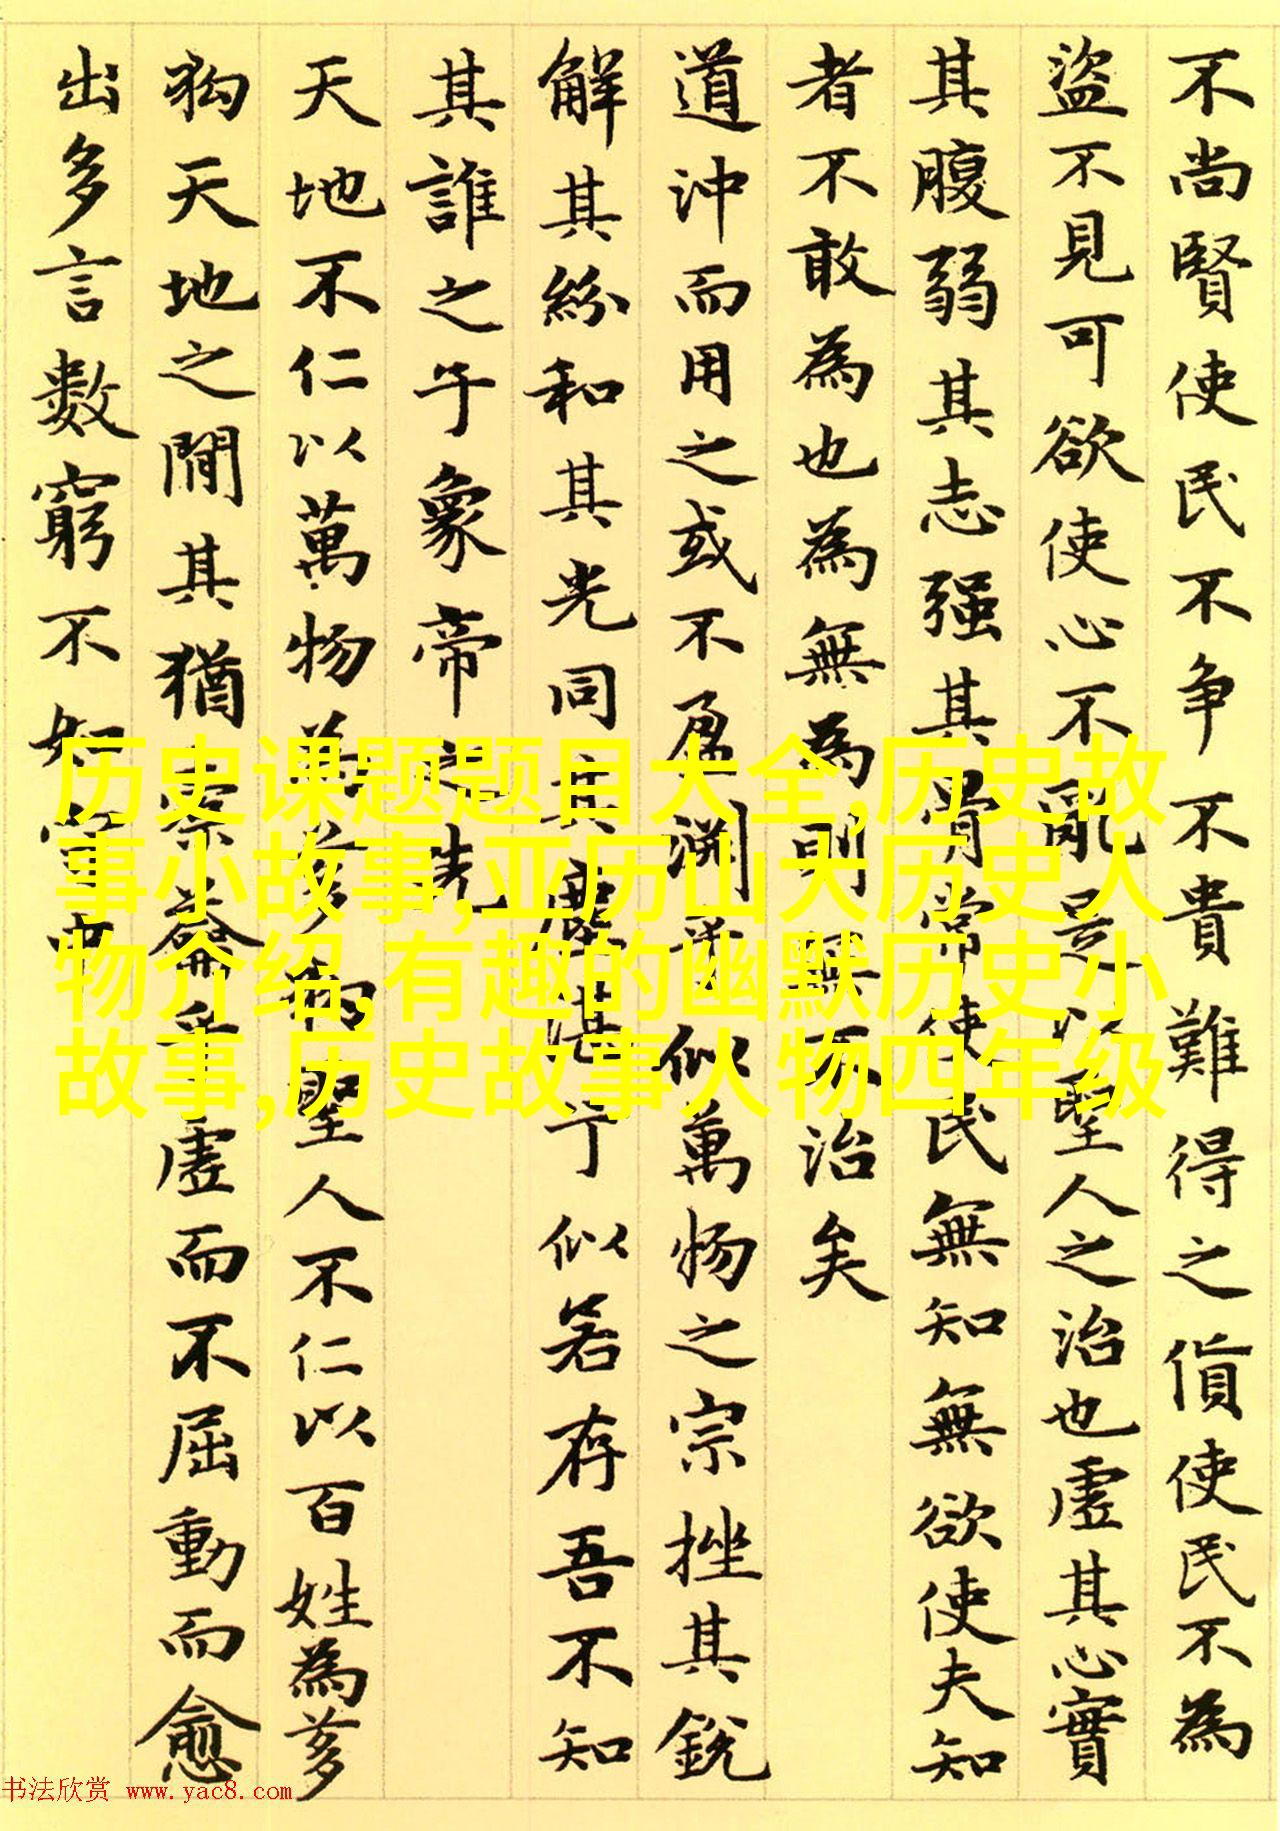 不尚賢使民不争不貴難得之貨使民不為
盜不見可欲使心不亂是以聖人之治也虛其心實
其腹弱其志强其骨常使民無知無欲使夫知
者不敢為也為無為則無不治矣
道沖而用之或不盈渊兮似萬物之宗挫其銳
解其紛和其光同其塵湛兮似若存吾不知
其誰之子象帝之先
天地不仁以萬物為芻狗聖人不仁以百姓為芻
狗天地之間其猶橐籥乎虛而不屈動而愈
出多言數窮不如守中
历史课题题目大全,历史故
事小故事,亚历山大历史人
物介绍,有趣的幽默历史小
故事,历史故事人物四年级
书法欣赏 www.yac8.com